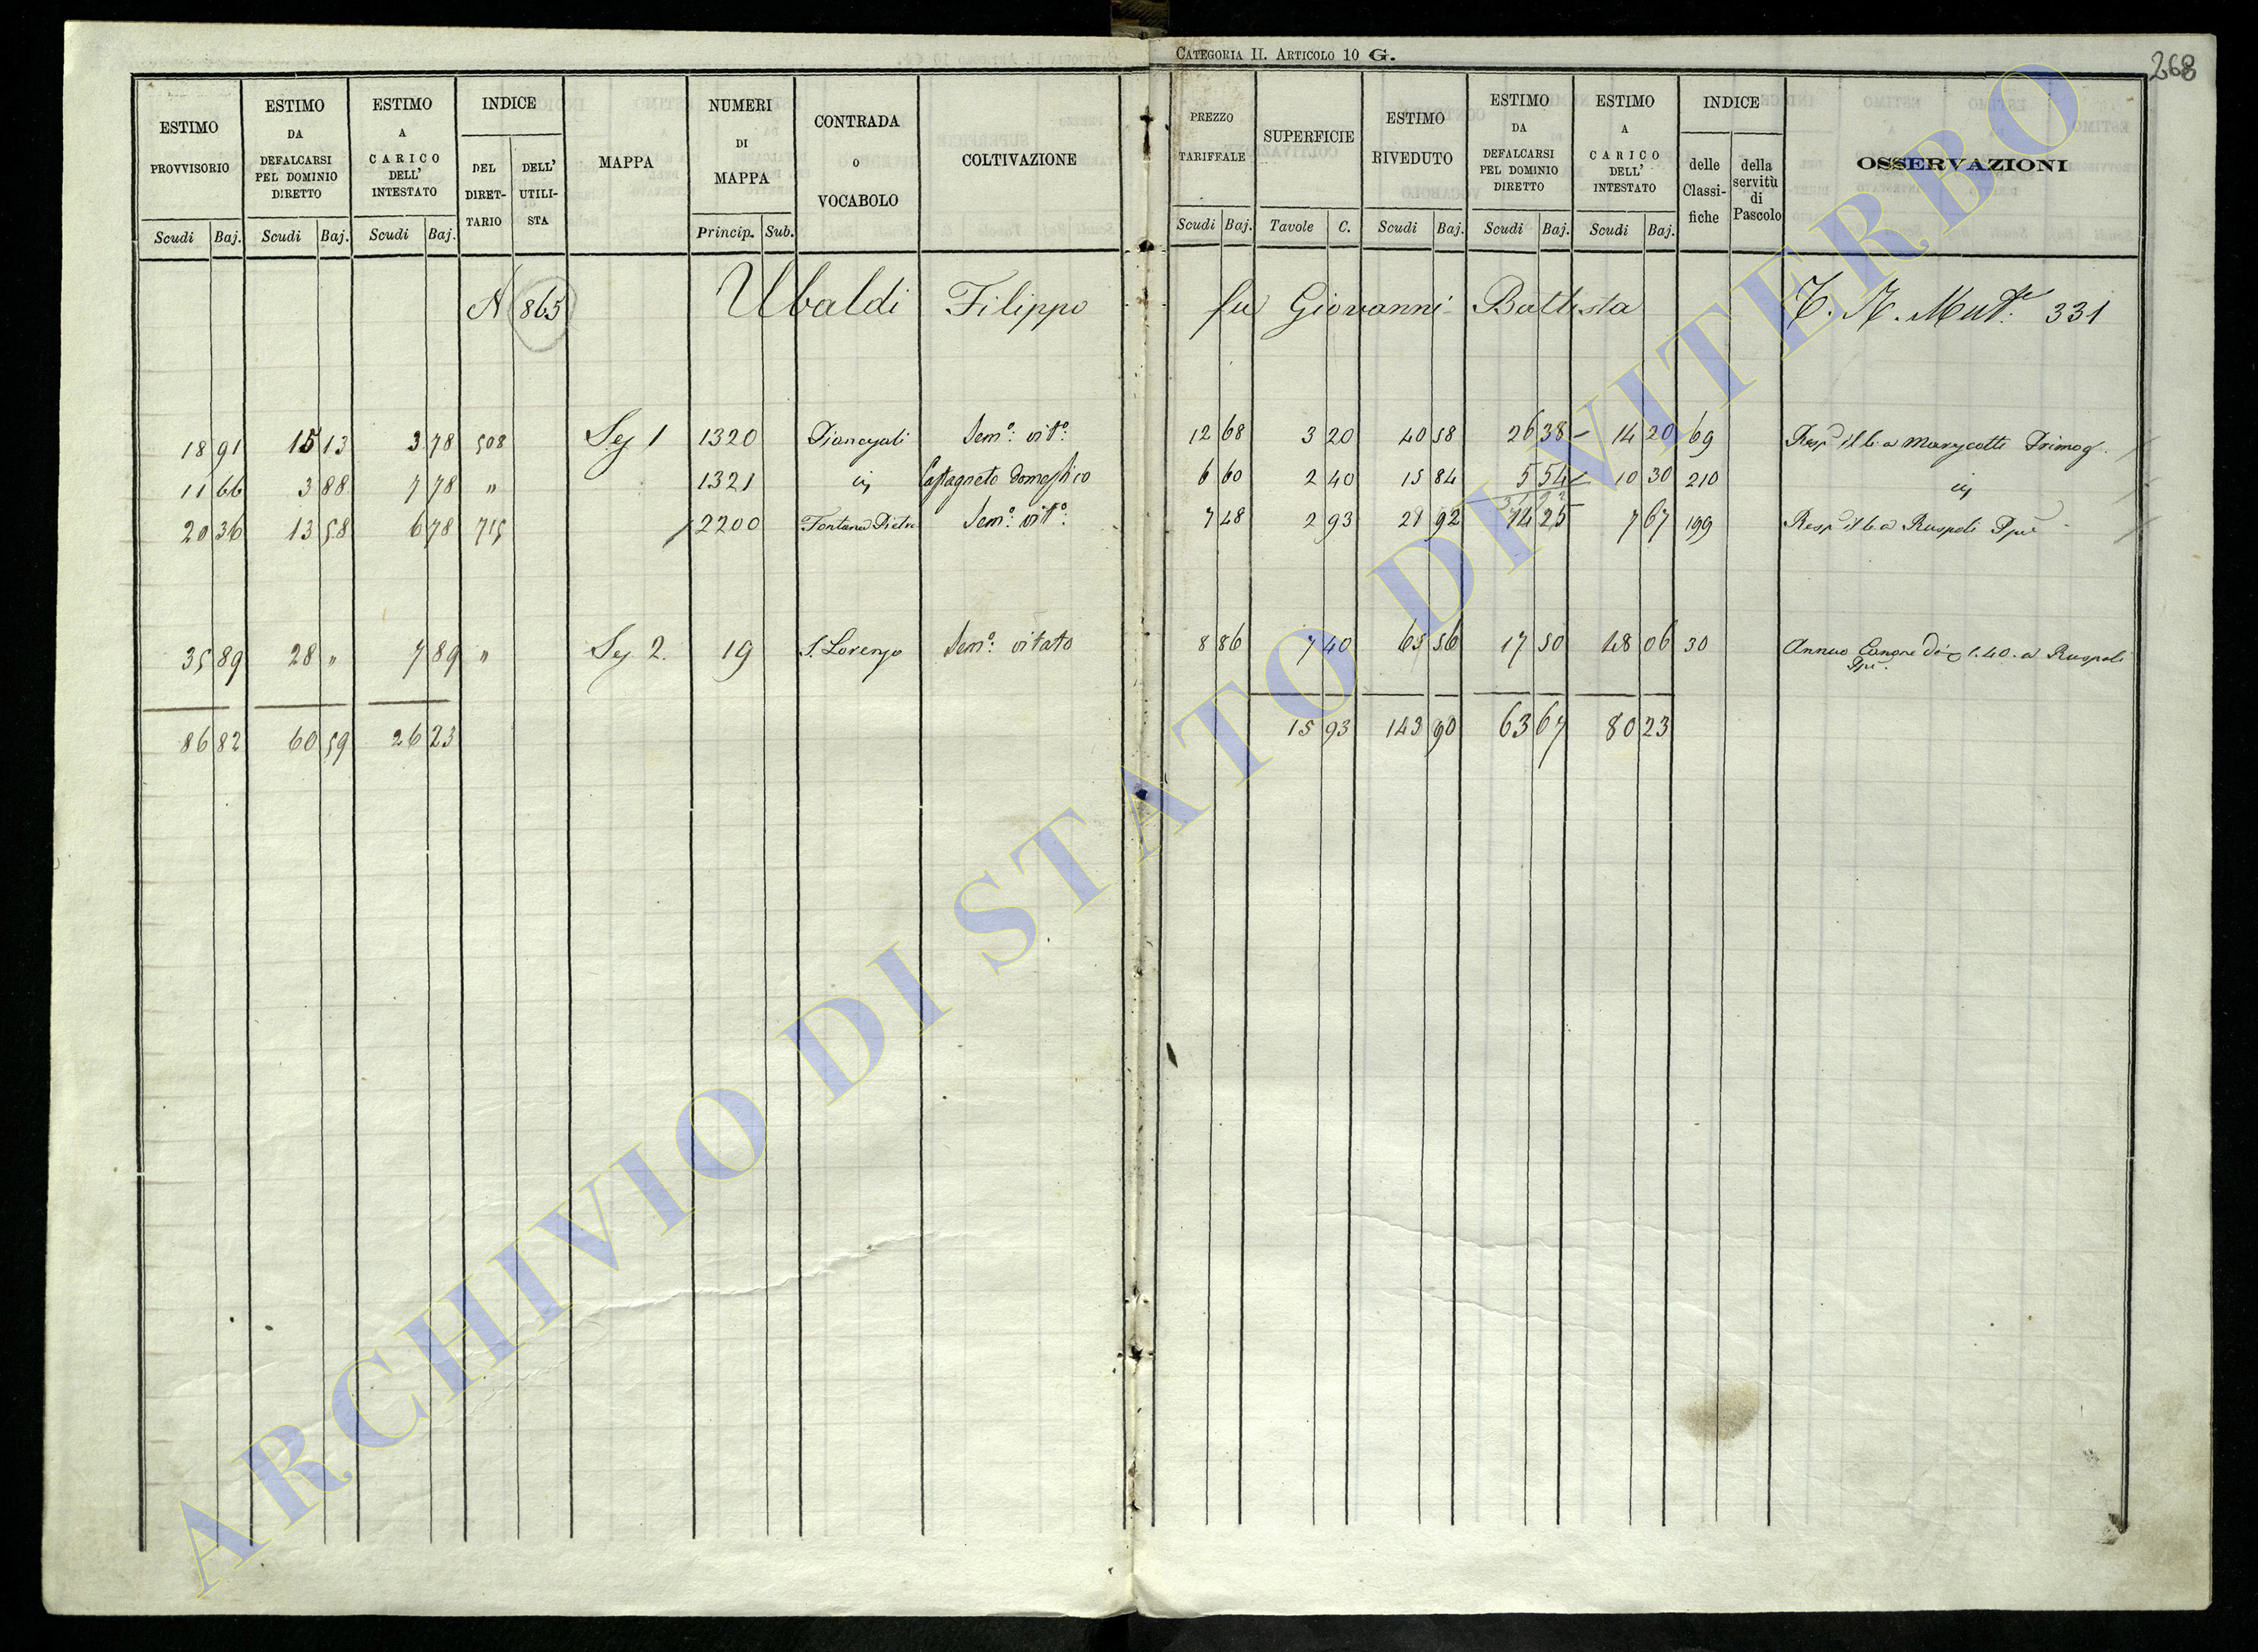 CATEGORIA II. ARTICOLO 10 G.
268
ESTIMO PROVVISORIO Scudi Baj.
ESTIMO DA DEFALCARSI PEL DOMINIO DIRETTO Scudi Baj.
ESTIMO A CARICO DELL' INTESTATO Scudi Baj.
INDICE DEL DIRETTARIO DELL' UTILISTA
MAPPA
NUMERI DI MAPPA Princip. Sub.
CONTRADA O VOCABOLO
COLTIVAZIONE
PREZZO TARIFFALE Scudi Baj.
SUPERFICIE Tavole C.
ESTIMO RIVEDUTO Scudi Baj.
ESTIMO DA DEFALCARSI PEL DOMINIO DIRETTO Scudi Baj.
ESTIMO A CARICO DELL' INTESTATO Scudi Baj.
INDICE delle Classifiche della servitù di Pascolo
OSSERVAZIONI
865 Ubaldi Filippo fu Giovanni Battista 331
18 91 15 13 3 78 508 Sez 1 1320 Semo: vito: 12 68 3 20 40 58 26 38 14 20 69
11 66 3 88 7 78 " 1321 Castagneto domestico 6 60 2 40 15 84 5 54 10 30 210
20 36 13 58 6 78 715 2200 Semo: vito: 7 48 2 93 21 92 14 25 7 67 199 Ruspoli
35 89 28 " 7 89 " Sez 2. 19 S. Lorenzo Semo: vitato 8 86 7 40 65 56 17 50 48 06 30 Annuo Canone di 1.40. a Ruspoli
86 82 60 59 26 23 15 93 143 90 63 67 80 23
ARCHIVIO DI STATO DI VITERBO